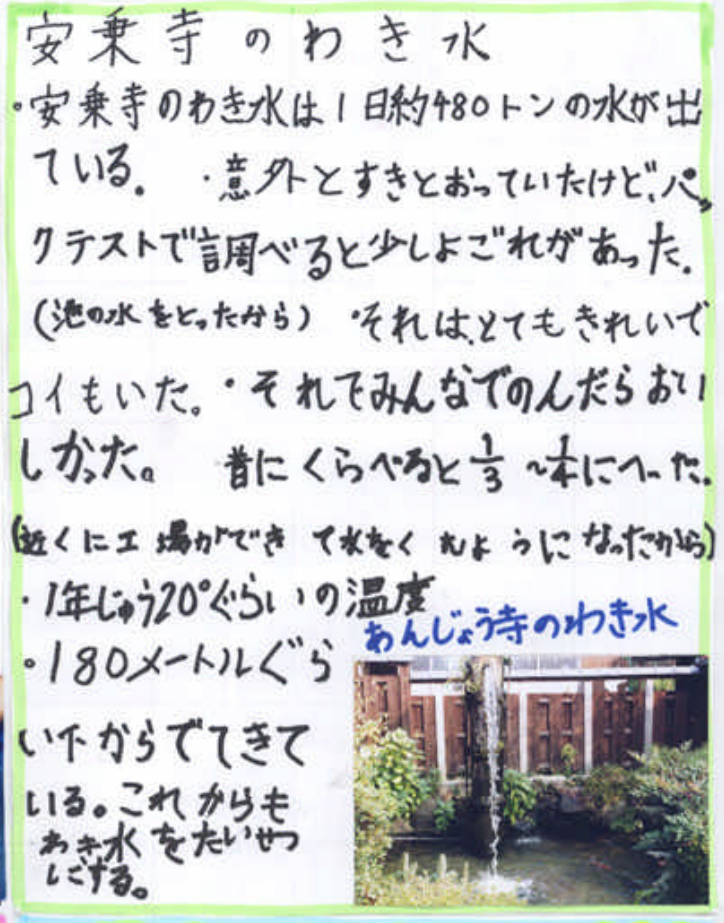 安乗寺のわき水
・安乗寺のわき水は1日約480トンの水が出
ている。 ・意外とすきとおっていたけど、パッ
クテストで調べると少しよごれがあった。
(池の水をとったから) ・それは、とてもきれいで
コイもいた。・それでみんなでのんだらおい
しかった。 昔にくらべると1/3~1/4にへった。
(近くに工場ができて水をくむようになったから)
・1年じゅう20°ぐらいの温度
あんじょう寺のわき水
・180メートルぐら
い下からでてきて
いる。これからも
わき水をたいせつ
にする。